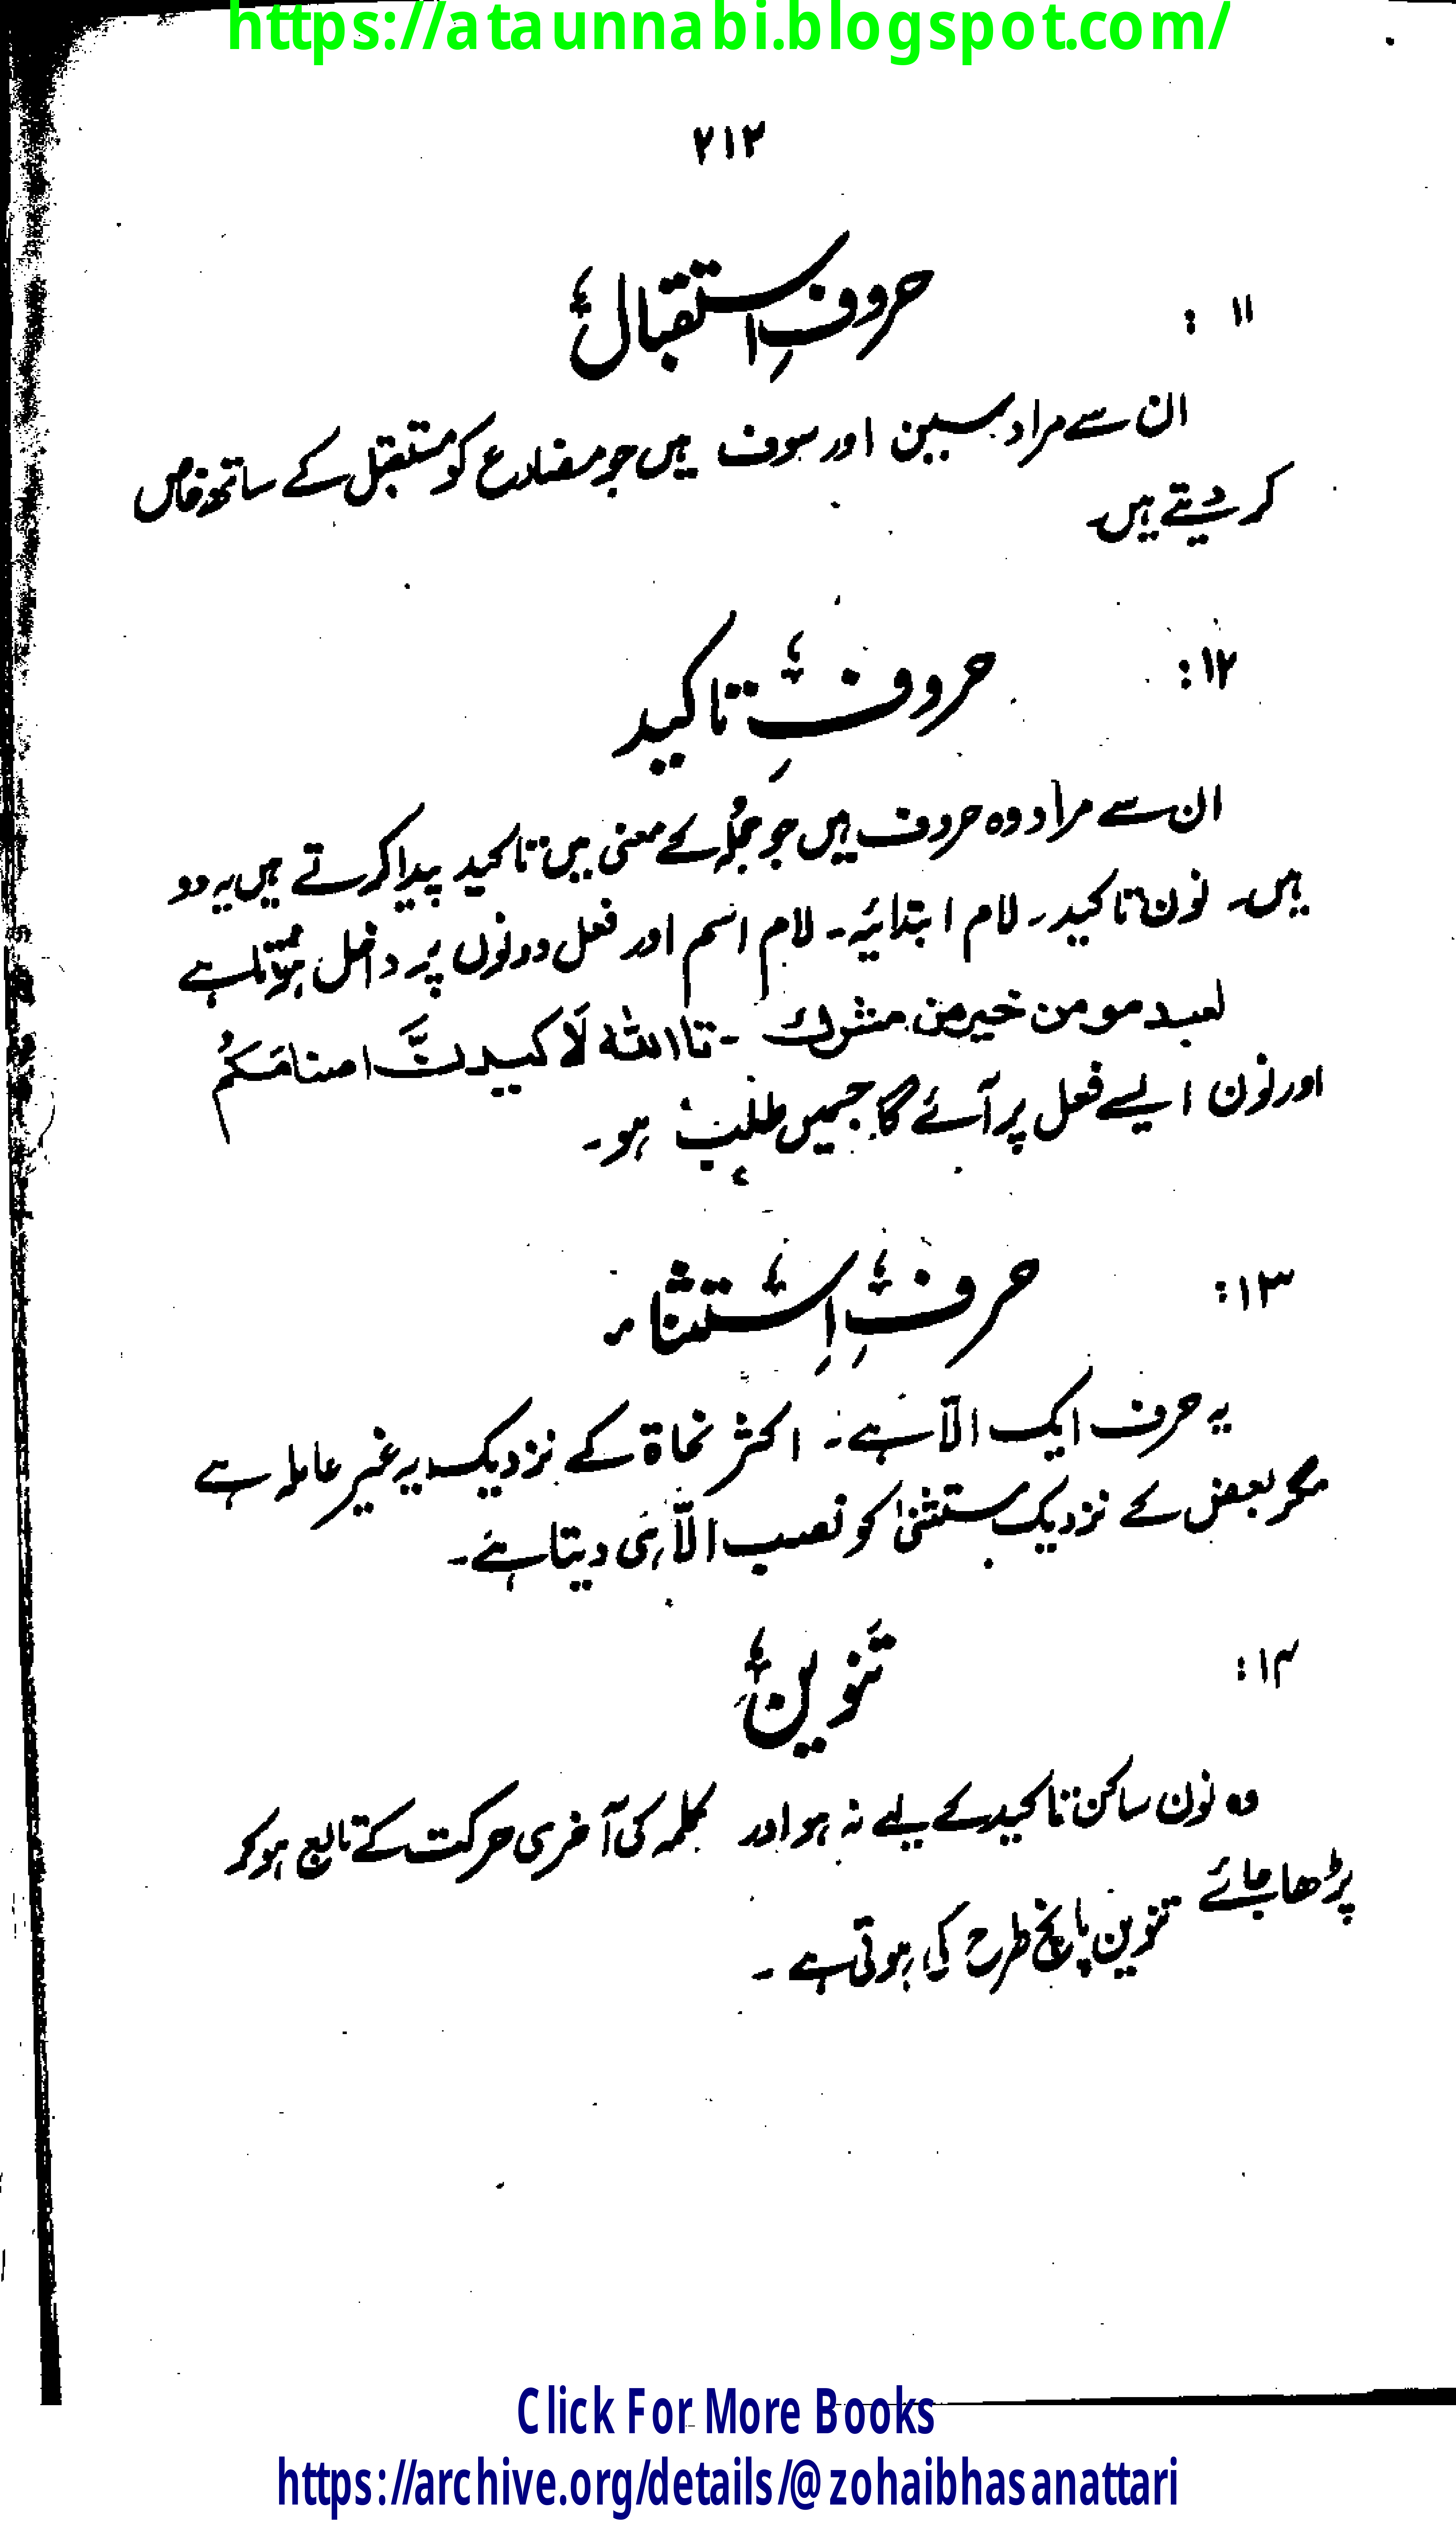 https://ataunnabi.blogspot.com/
۲۱۲
۱۱ : حروفِ استقبال
ان سے مراد سین اور سوف ہیں جو مضارع کو مستقبل کے ساتھ خاص
کر دیتے ہیں۔
۱۲: حروفِ تاکید
ان سے مراد وہ حروف ہیں جو جملہ کے معنی میں تاکید پیدا کرتے ہیں یہ دو
ہیں۔ نون تاکید۔ لام ابتدائیہ۔ لام اسم اور فعل دونوں پر داخل ہوتا ہے
لعبد مومن خیر من مشرك ۔ تا اللہ لَاکیدنَّ اصنامَکُم
اور نون ایسے فعل پر آئے گا جسمیں طلب ہو۔
۱۳: حرفِ اِستثناء
یہ حرف ایک الّا ہے۔ اکثر نحاۃ کے نزدیک یہ غیر عاملہ ہے
مگر بعض کے نزدیک مستثنیٰ کو نصب الّا ہی دیتا ہے۔
۱۴: تنوین
وہ نون ساکن تاکید کے لیے نہ ہو اور کلمہ کی آخری حرکت کے تابع ہو کر
پڑھا جائے تنوین پانچ طرح کی ہوتی ہے ۔
Click For More Books
https://archive.org/details/@zohaibhasanattari